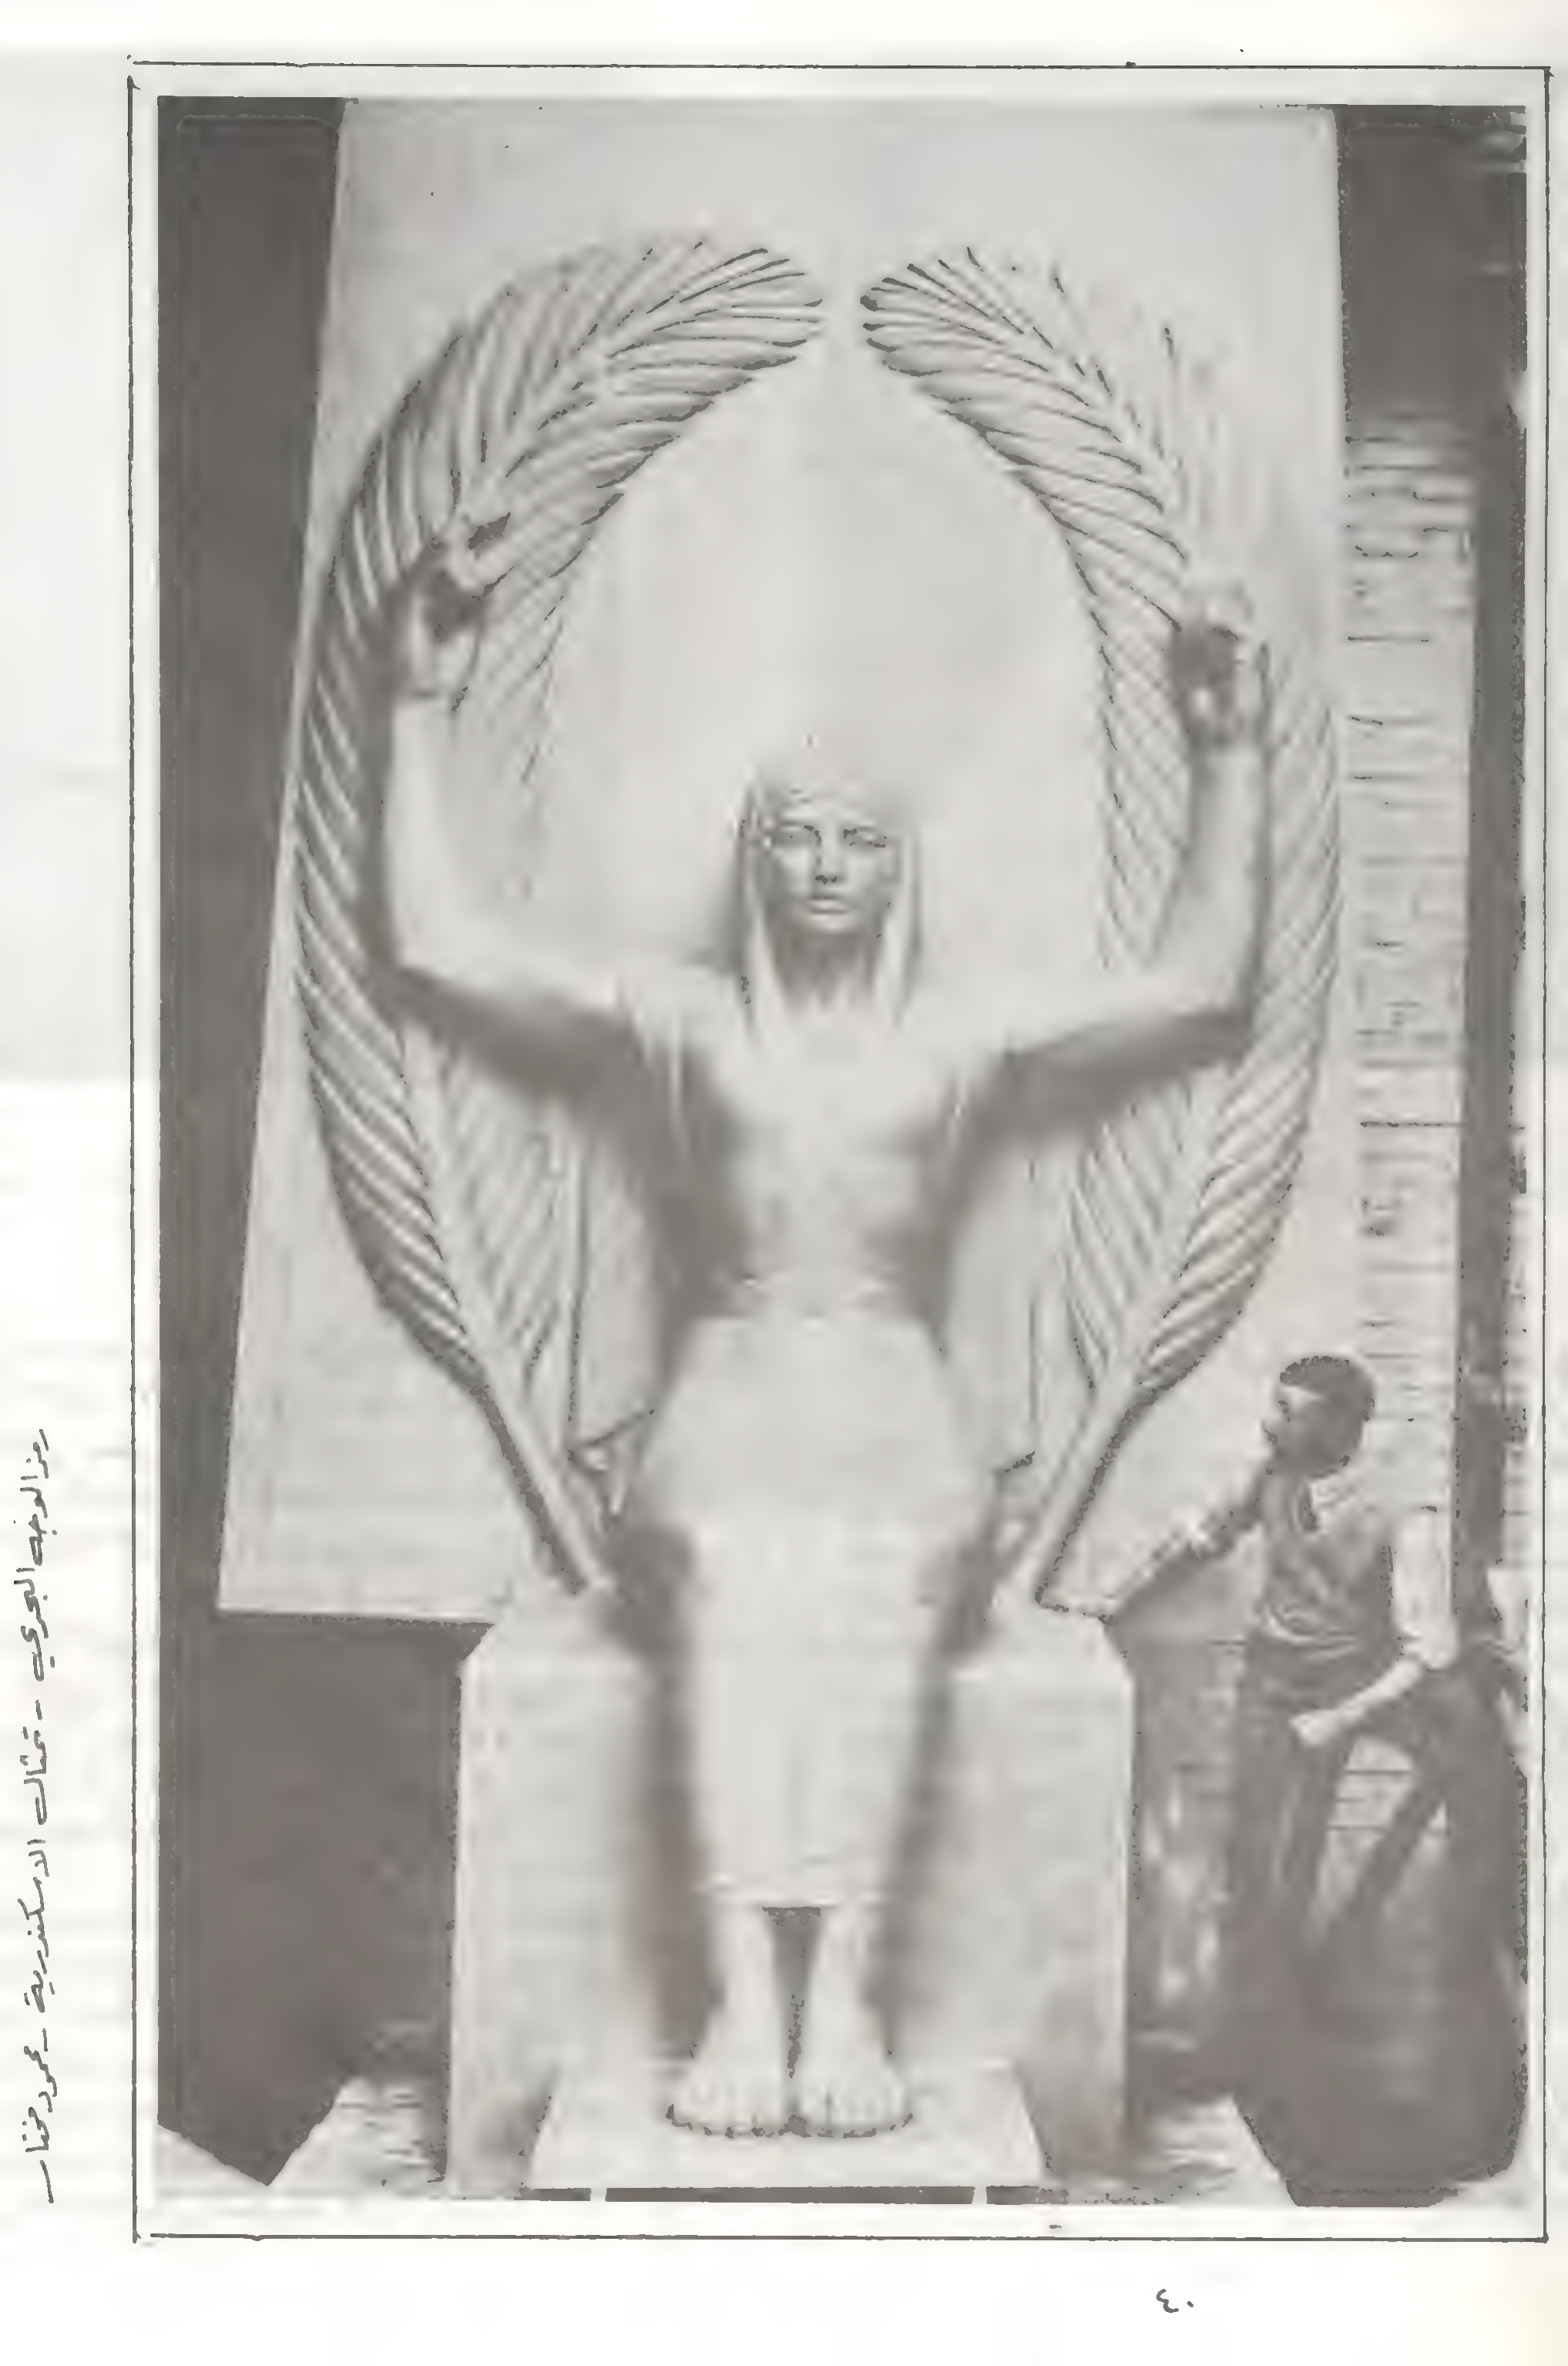 رمز الوجه البحري - تمثال الاسكندرية - محمود مختار
٤٠